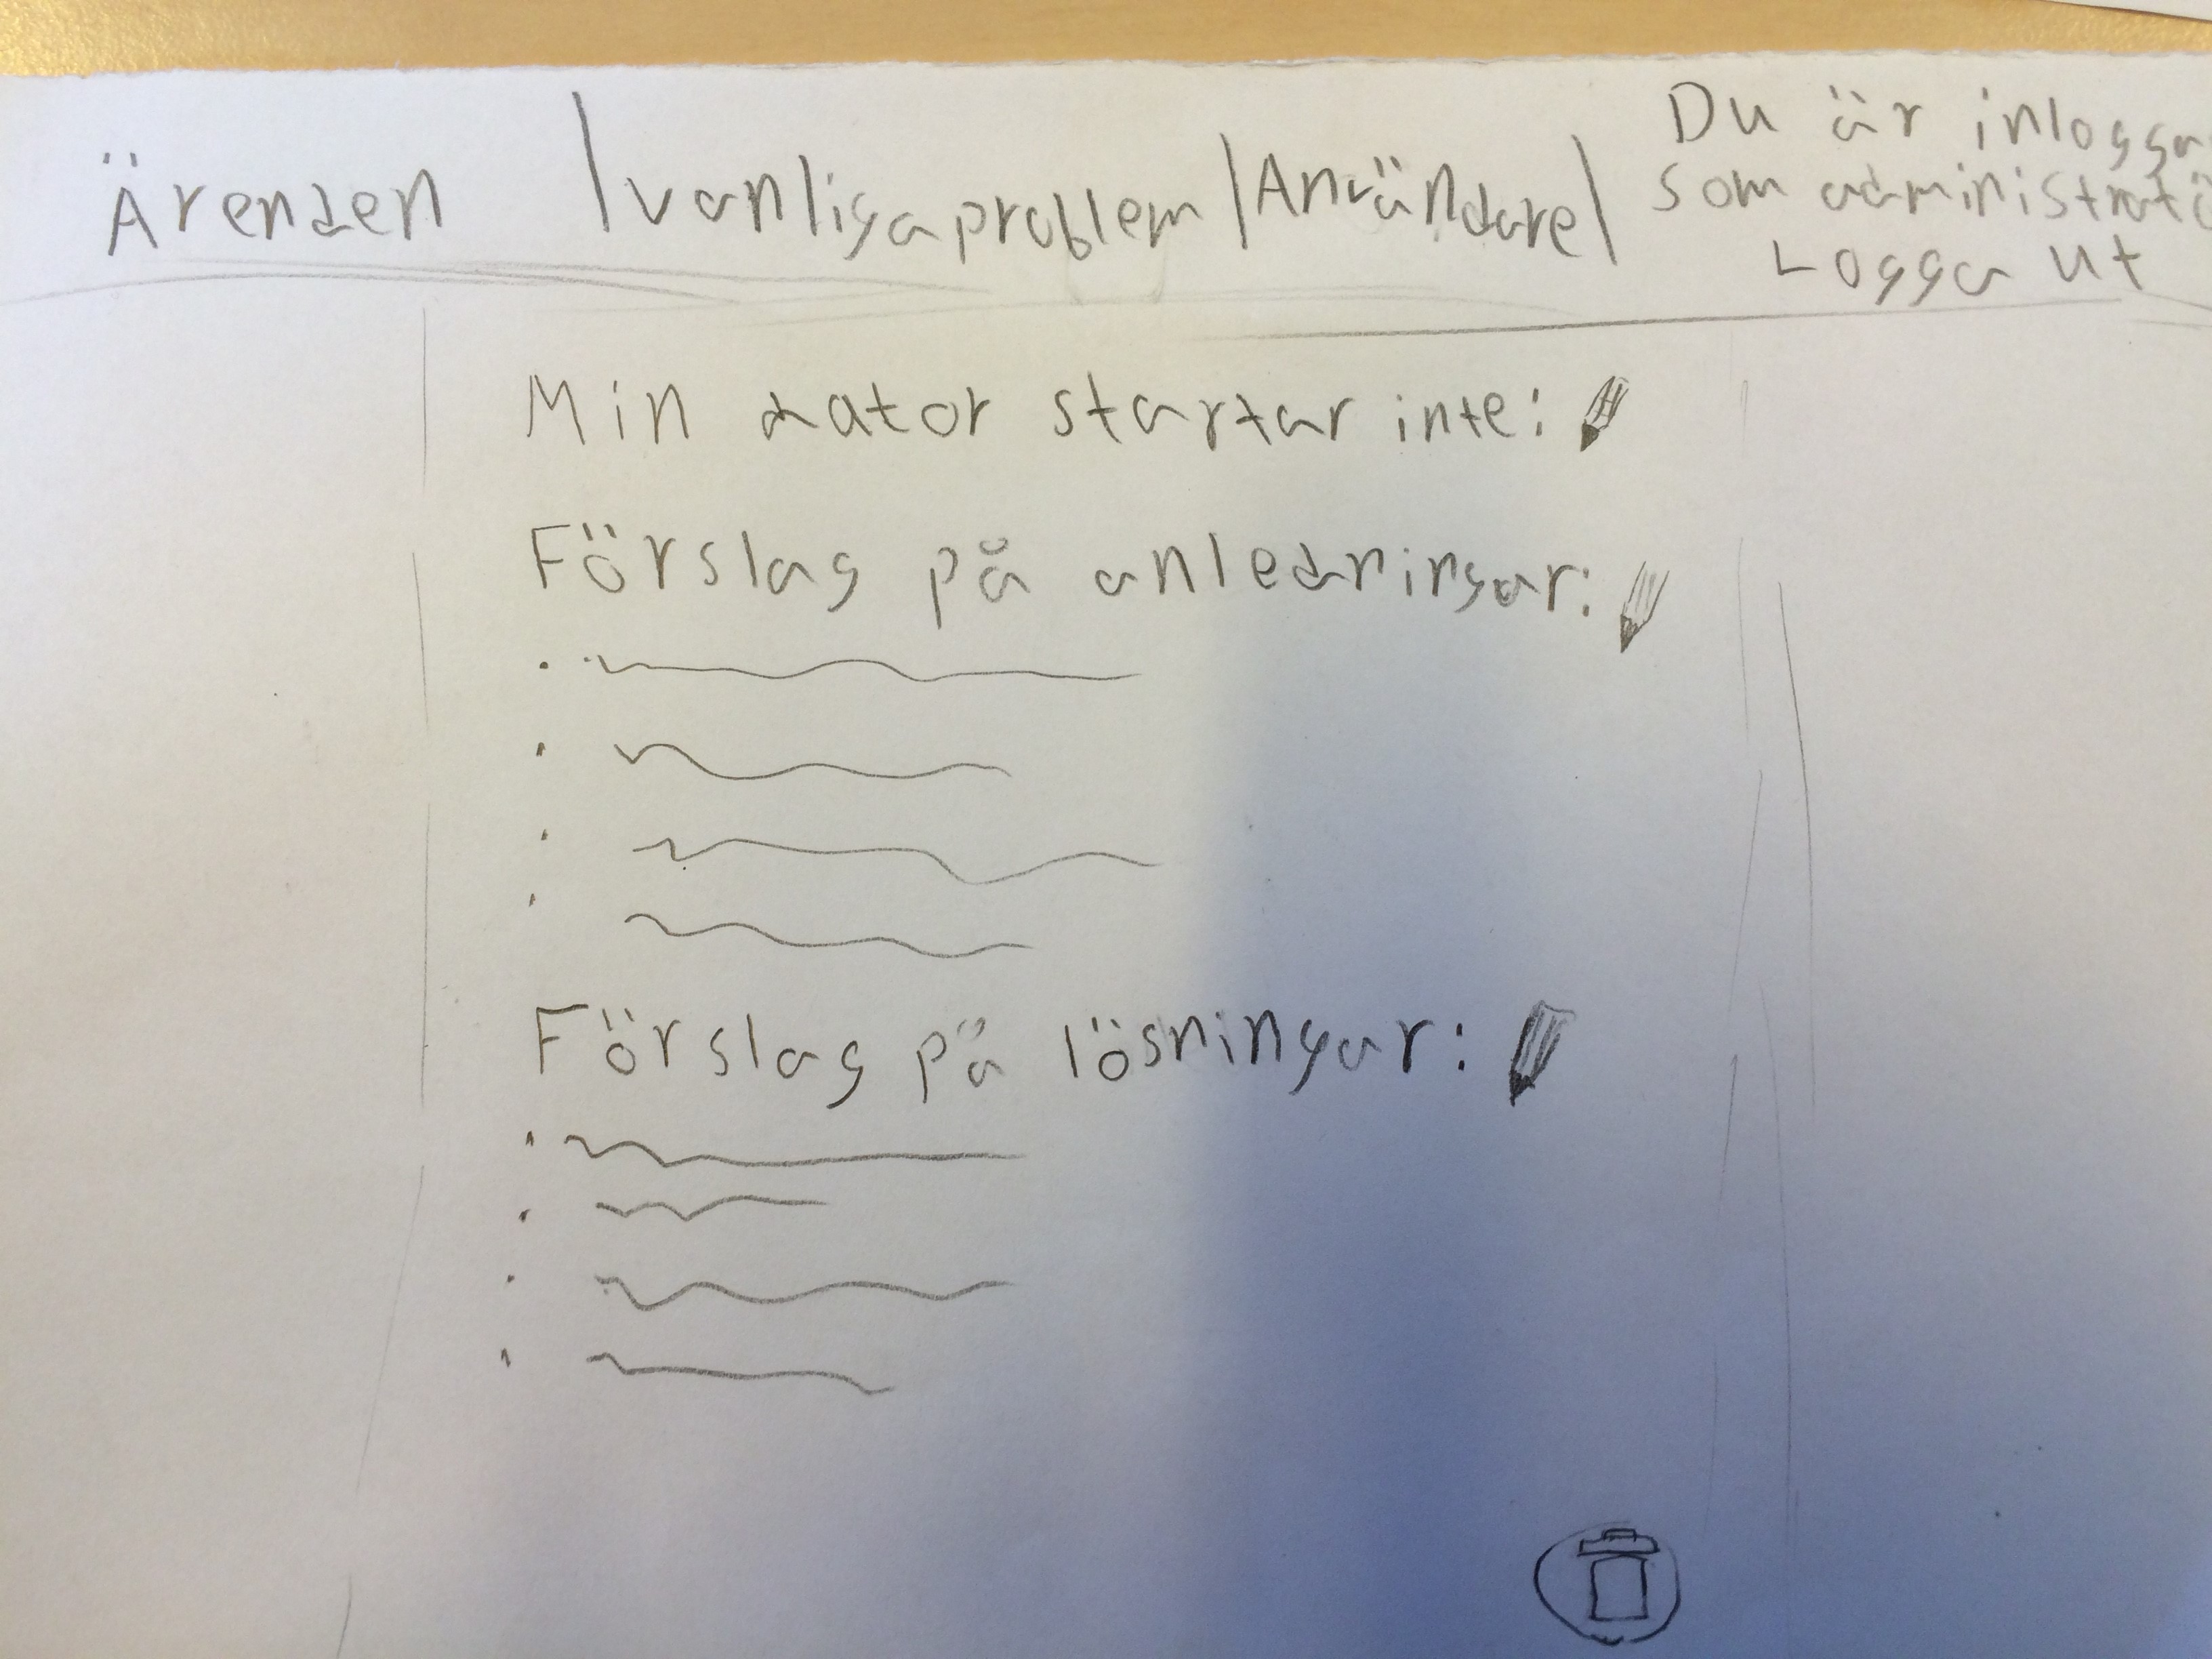 Ärenden | vanliga problem | Användare |
Du är inlogga
som administratö
Logga ut
Min dator startar inte:
Förslag på anledningar:
Förslag på lösningar: